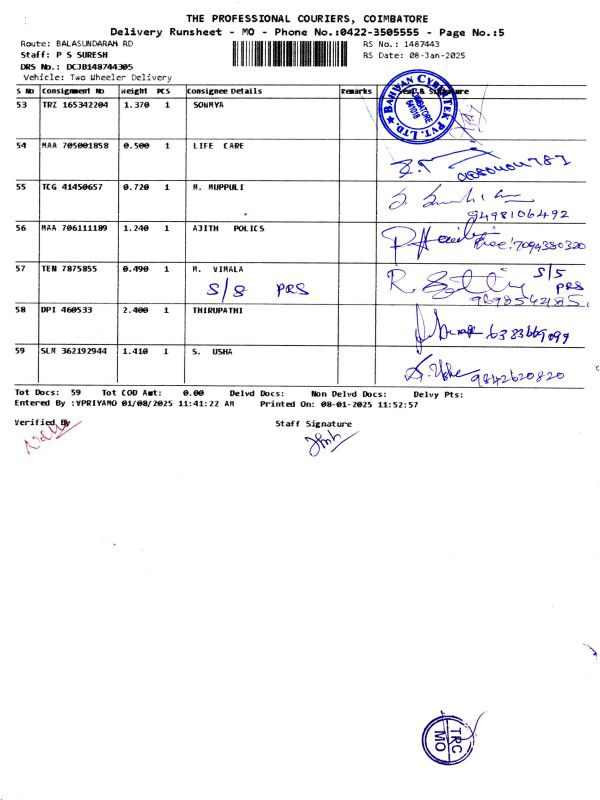 THE PROFESSIONAL COURIERS, COIMBATORE
Delivery Runsheet - MO - Phone No.:0422-3505555 - Page No.:5
Route: BALASUNDARAM RD
RS No.: 1487443
Staff: P S SURESH
RS Date: 08-Jan-2025
DRS No.: DCJB148744305
Vehicle: Two Wheeler Delivery
S No Consignment No Weight PCS Consignee Details Remarks Seal & Signature
BAHWAN CYBERTEK PVT. LTD. COIMBATORE 641018
53 TRZ 165342204 1.370 1 SOWMYA
54 MAA 705001858 0.500 1 LIFE CARE
55 TCG 41450657 0.720 1 M. MUPPULI
9498106492
56 MAA 706111189 1.240 1 AJITH POLICS
7094380320
57 TEN 7875855 0.490 1 M. VIMALA
S/S PRS
S/S PRS
9698542185
58 DPI 460533 2.400 1 THIRUPATHI
59 SLM 362192944 1.410 1 S. USHA
S. Usha 9842620820
Tot Docs: 59 Tot COD Amt: 0.00 Delvd Docs: Non Delvd Docs: Delvy Pts:
Entered By :VPRIYAMO 01/08/2025 11:41:22 AM Printed On: 08-01-2025 11:52:57
Verified By Staff Signature
TRC
MO